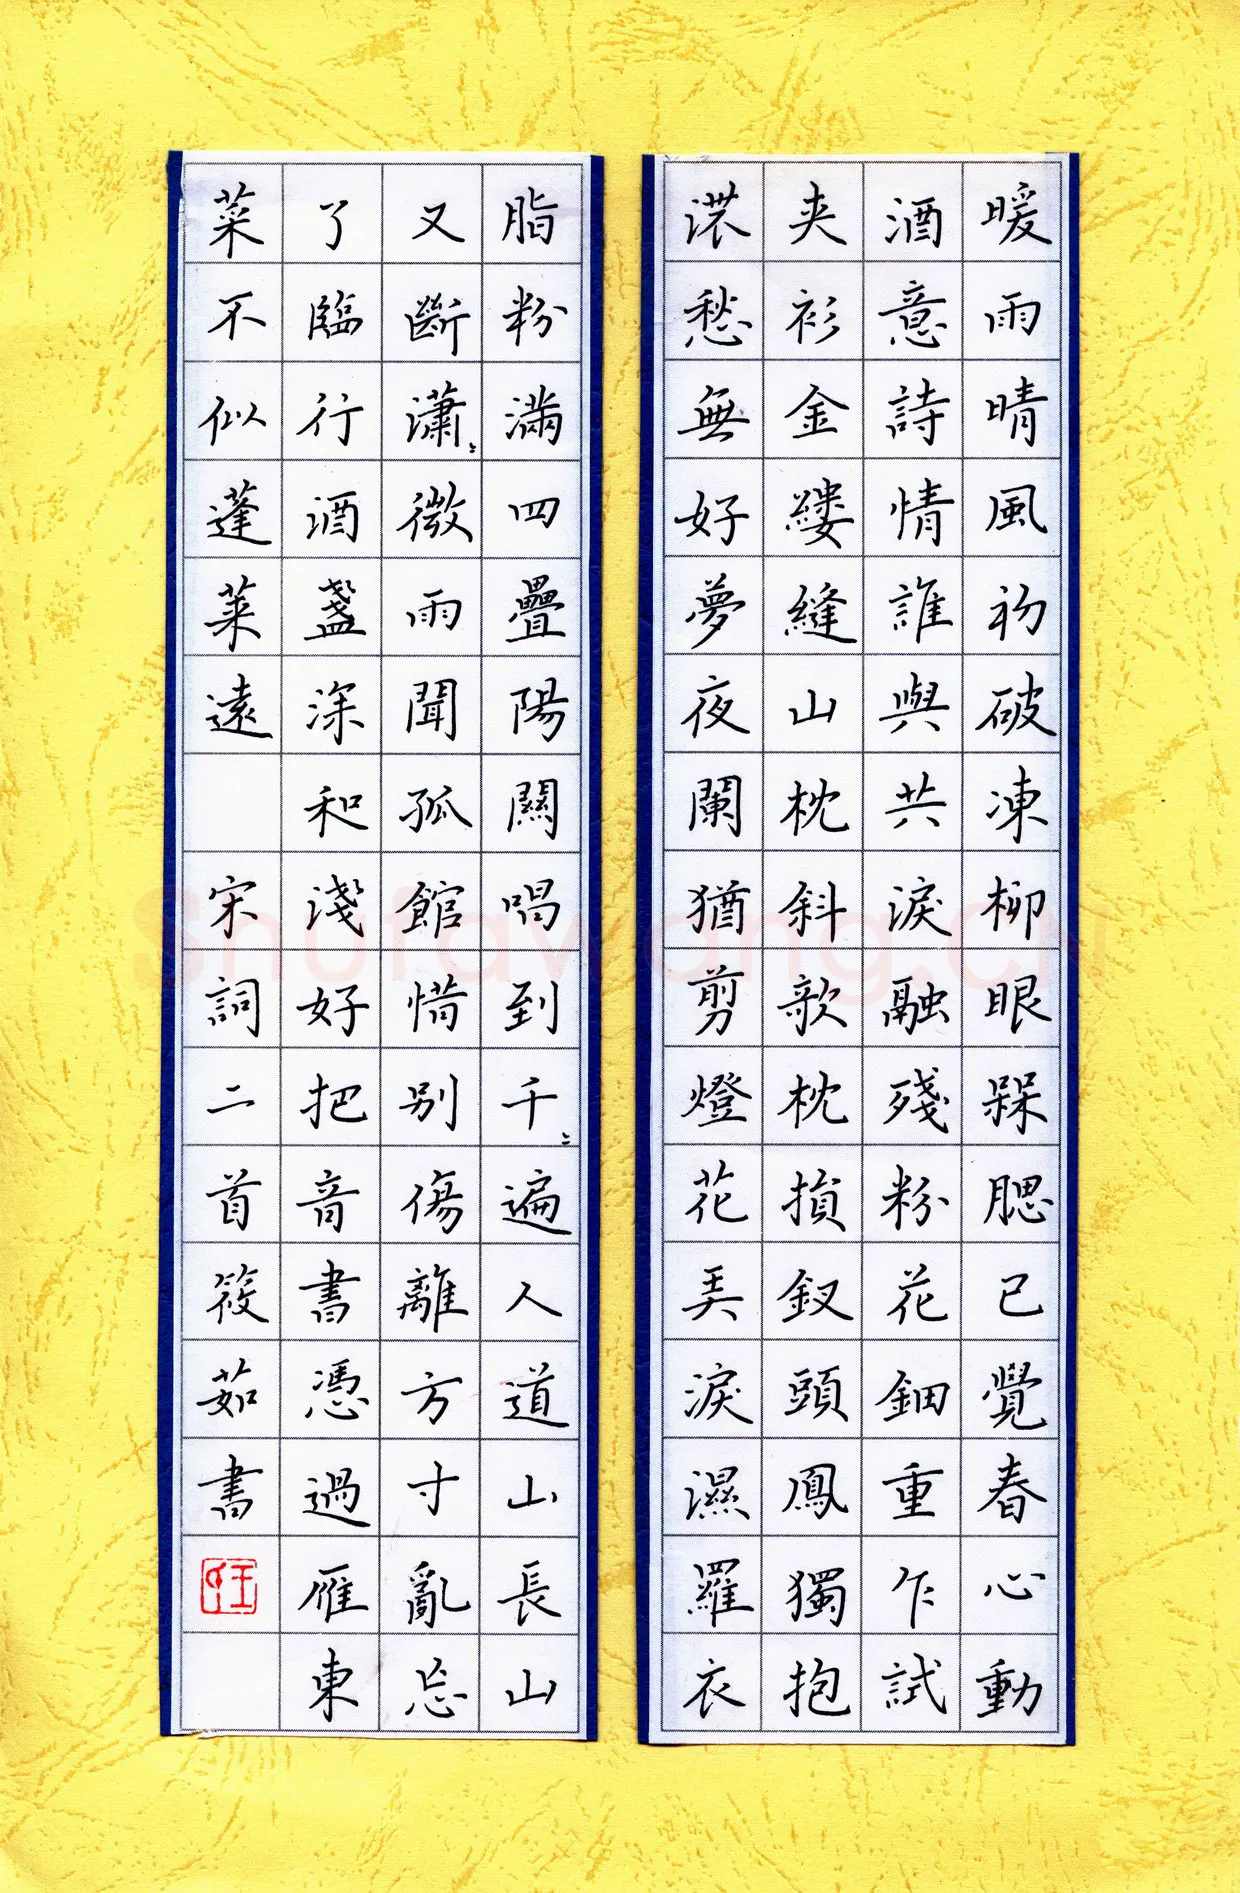 暖雨晴風初破凍柳眼槑腮已覺春心動
酒意詩情誰與共淚融殘粉花鈿重乍試
夾衫金縷縫山枕斜欹枕損釵頭鳳獨抱
濃愁無好夢夜闌猶剪燈花弄淚濕羅衣
脂粉滿四疊陽關唱到千〻遍人道山長山
又斷瀟〻微雨聞孤館惜別傷離方寸亂忘
了臨行酒盞深和淺好把音書憑過雁東
菜不似蓬萊遠 宋詞二首筱茹書
Shufawang.CN